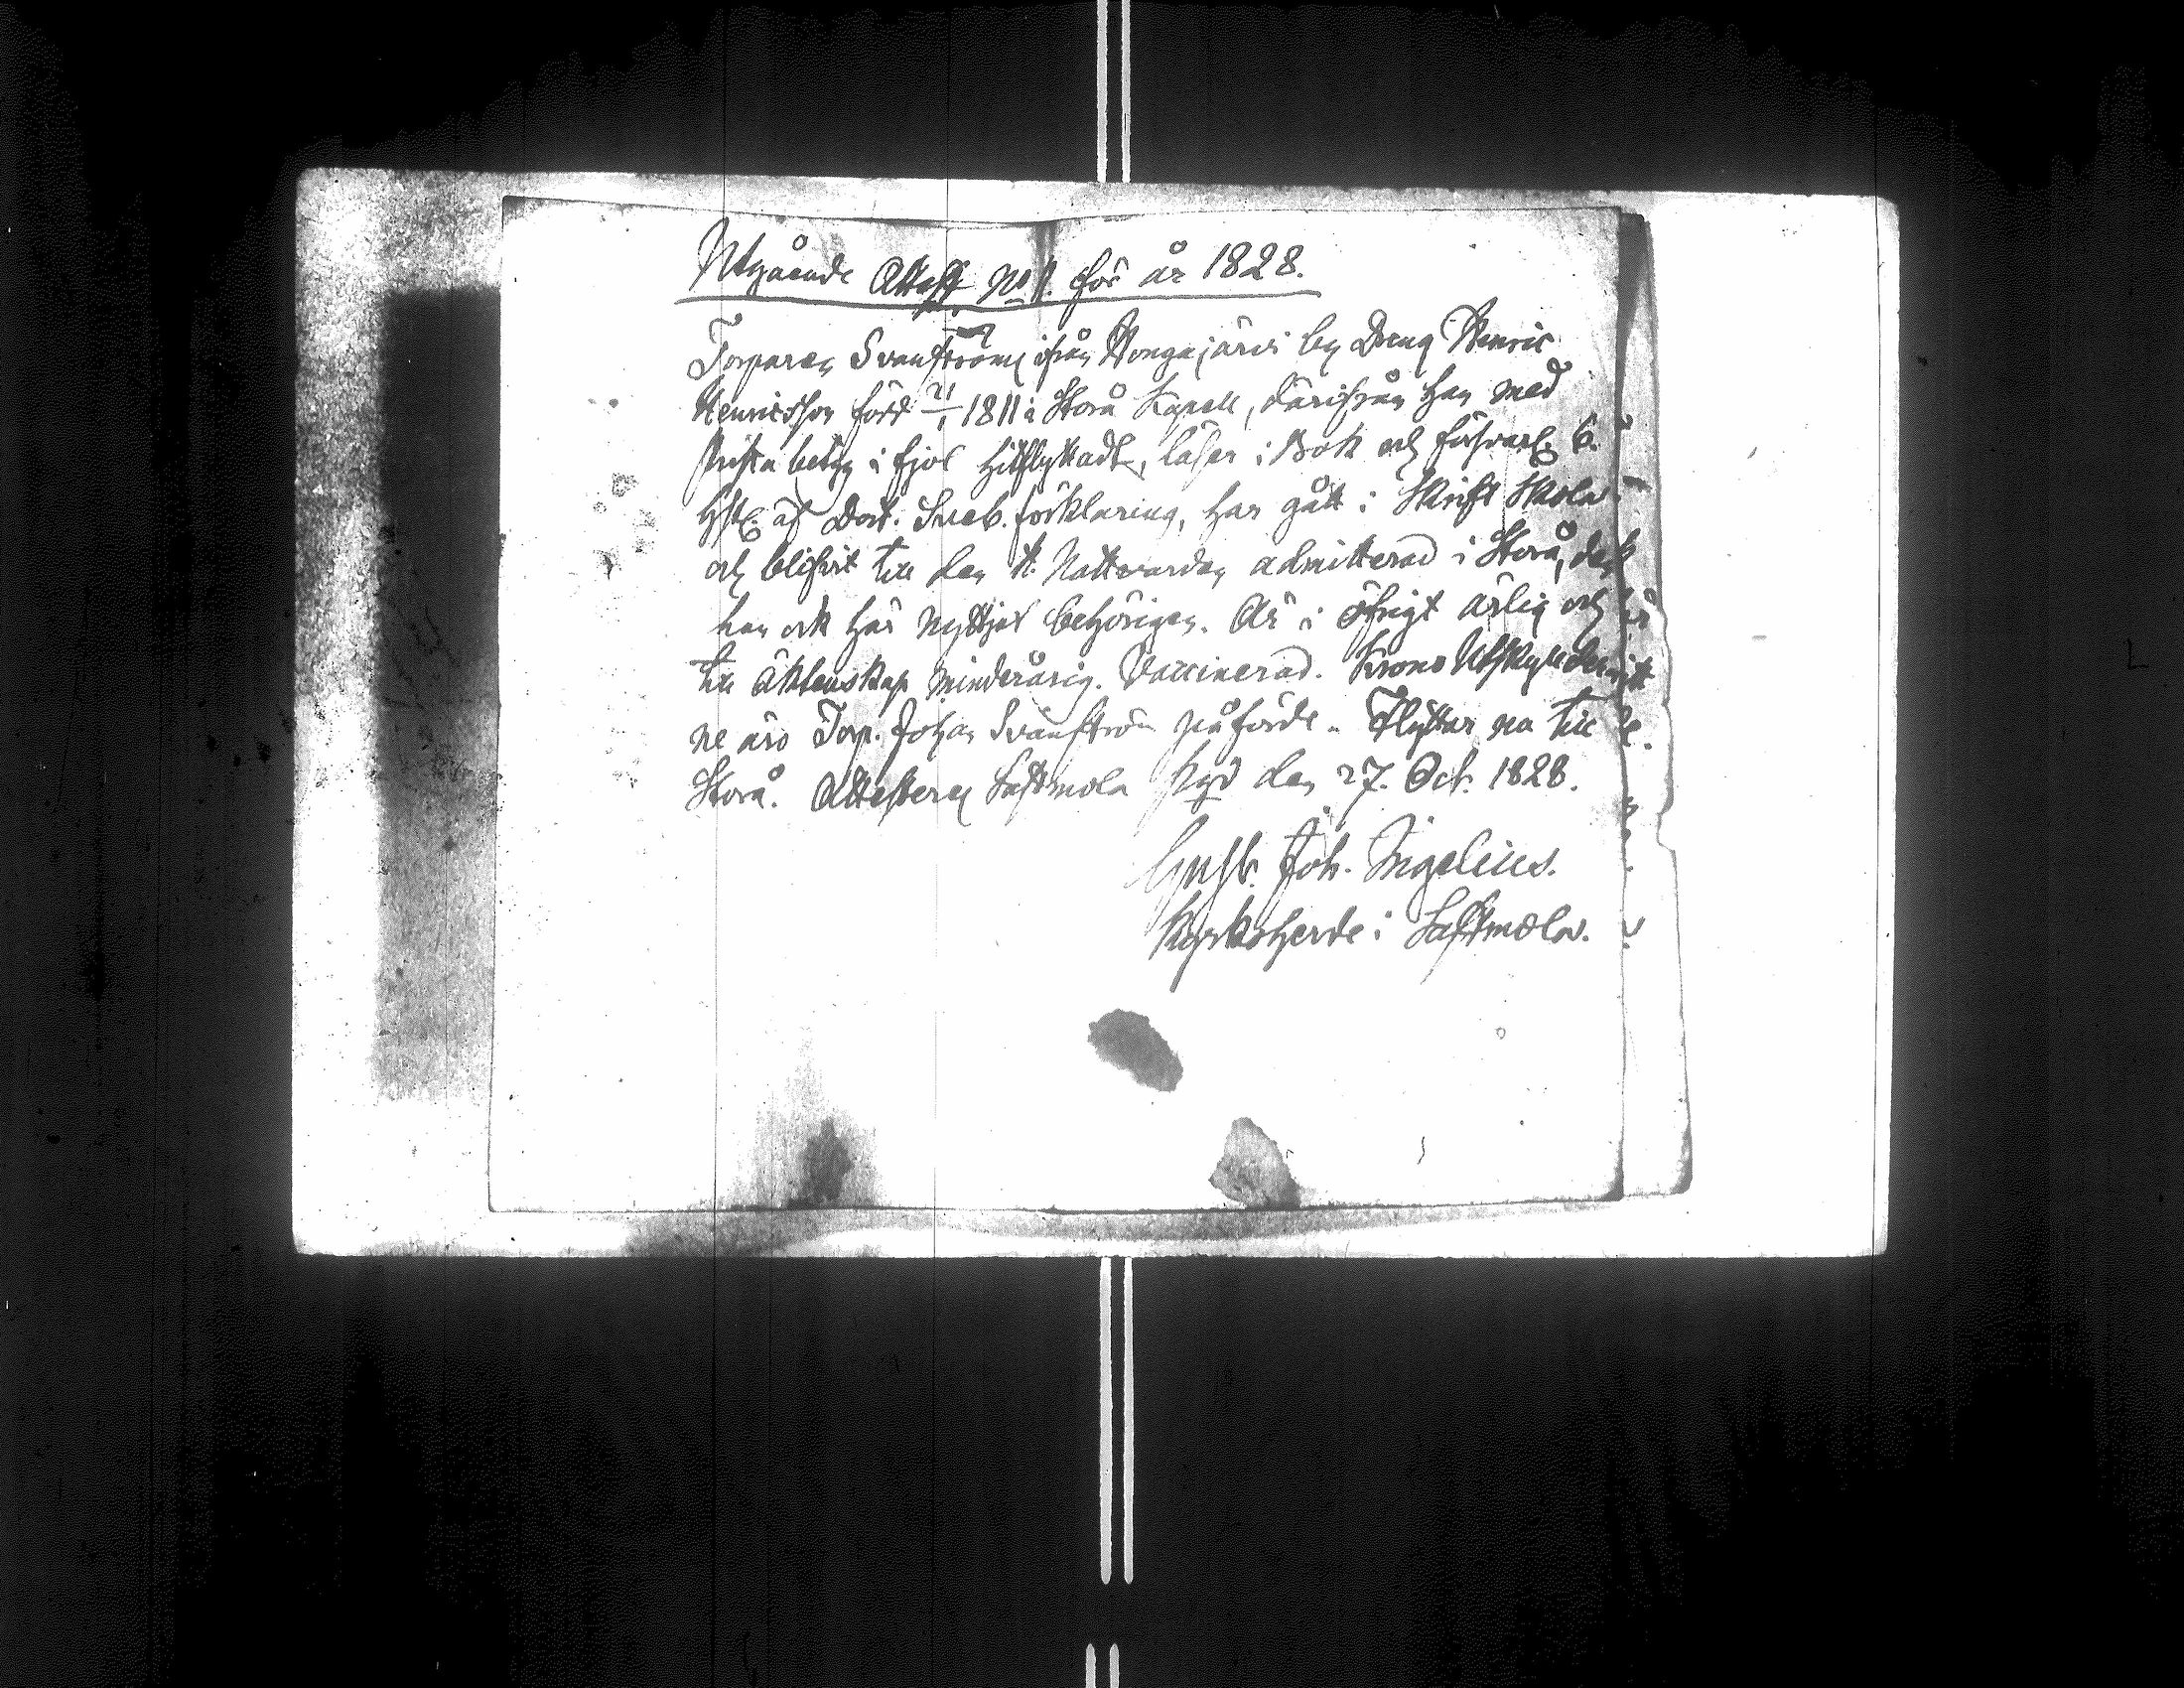 Utgående Attest No 11. för år 1828.
Torparen Svanströms ifrån Hongojärvi by Dreng Henric
Henricsson född 21/1 1811 i Storå Kapell, därifrån han med
Prästabetyg i fjol hitflyttadt, läser i Bok och försvarl. C.
Hfl. af Doct. Sveb. förklaring, har gått i Skrift Skola
och blifvit till den H. Nattvarden admitterad i Storå, den
han ock här nyttjat behörigen. Är i öfrigt ärlig och
till Äktenskap minderårig. Vaccinerad. Krono Utskylder
ne äro Torp. Johan Svanström påförde. Flyttar nu till
Storå. Attesterar Sastmola den 27. Oct. 1828.
Gust. Joh. Ingelius.
Kyrkoherde i Sastmola.